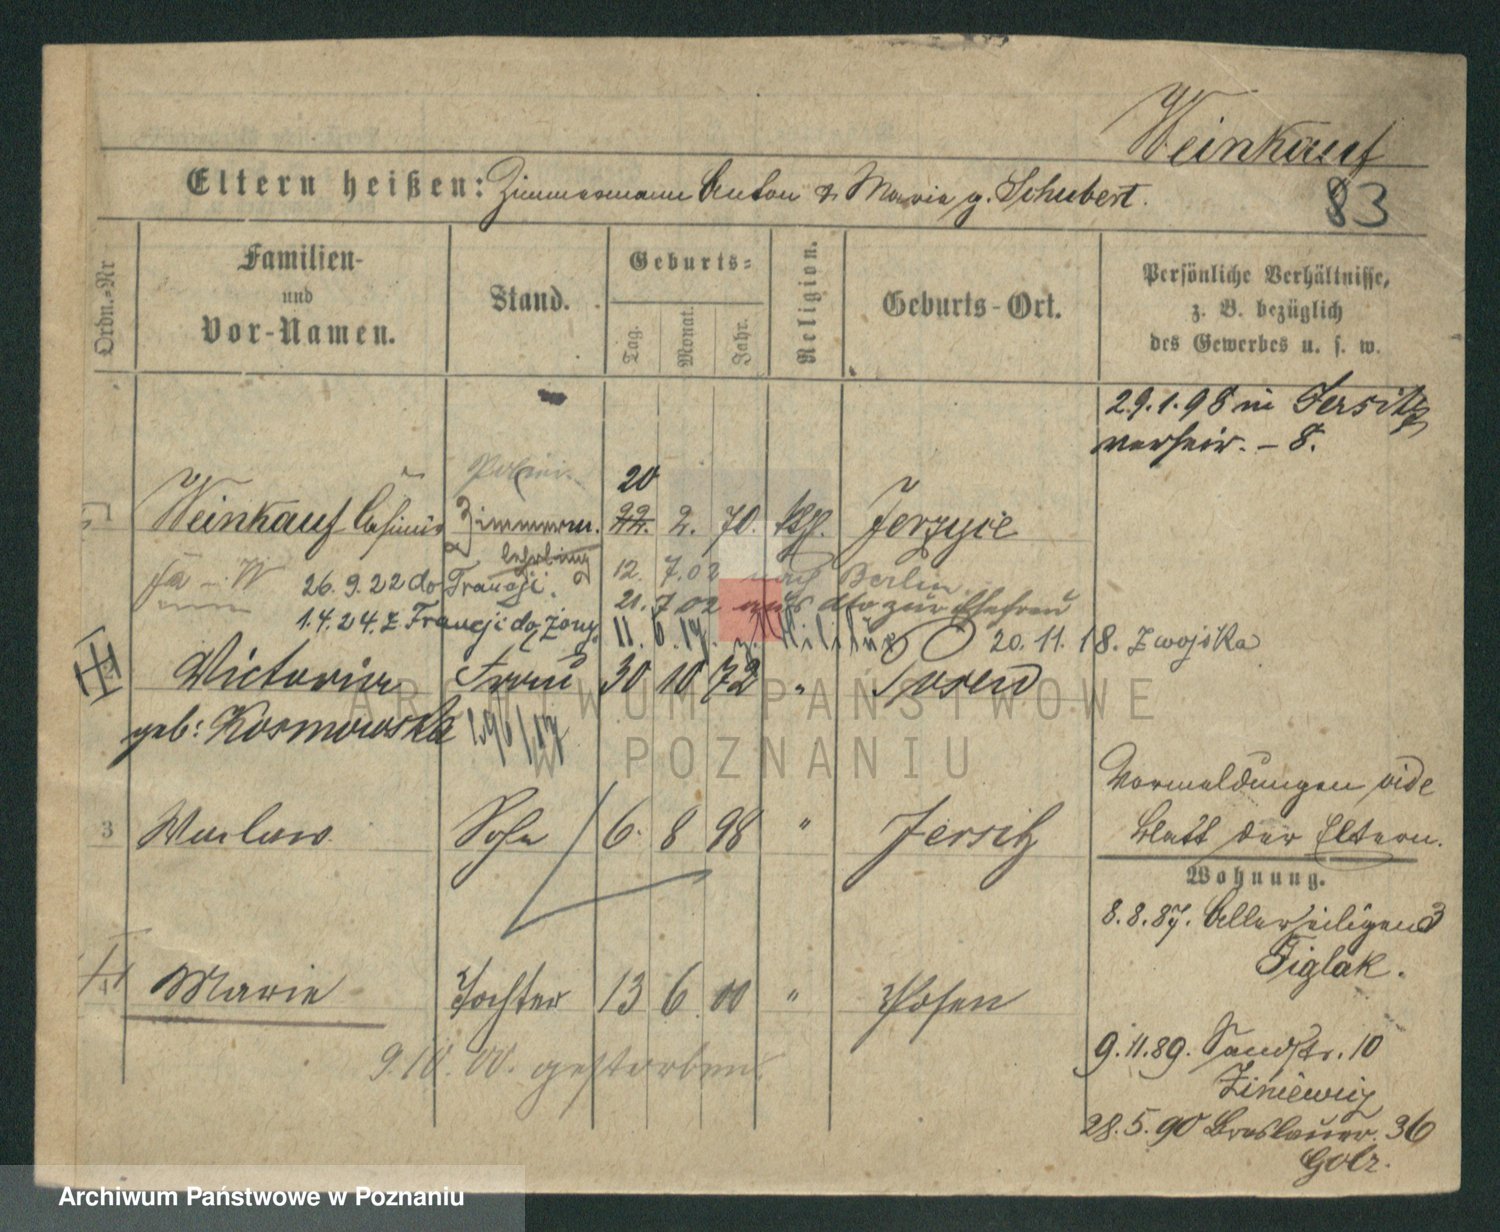 Weinkauf
Eltern heißen: Zimmermann Anton & Maria g. Schubert.
83
Ordn.-Nr
Familien-
und
Vor-Namen.
Stand.
Geburts-
Tag.
Monat.
Jahr.
Religion.
Geburts-Ort.
Persönliche Verhältnisse,
z. B. bezüglich
des Gewerbes u. s. w.
29.1.98 in Jersitz
verheir. - 8.
20
Weinkauf Casimir Zimmerm. 22. 2. 70. kath. Jerzyce
lehrling
26.9.22 do Francji.
12. 7.02 nach Berlin
21. 7 02 aus dto zur Ehefrau
1.4.24. z Francji do żony
11. 6. 17. z. Militär 20. 11. 18. z wojska
Victoria Frau 30 10 72 " Posen
geb: Kosmowska
Vormeldungen vide
Blatt der Eltern.
3 Waclaw Sohn 6. 8 98 " Jersitz
Wohnung.
8.8.87. Allerheiligen 3
Figlak.
4 Marie Tochter 13 6 00 " Posen
9.10.00. gestorben.
9.11.89. Sandstr. 10
Ziniewicz
28.5.90 Breslauer. 36
Golz.
ARCHIWUM PAŃSTWOWE
W POZNANIU
Archiwum Państwowe w Poznaniu